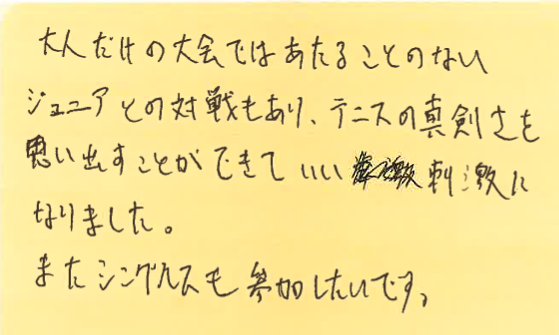 大人だけの大会ではあたることのない
ジュニアとの対戦もあり、テニスの真剣さを
思い出すことができていい刺激に
なりました。
またシングルスも参加したいです。